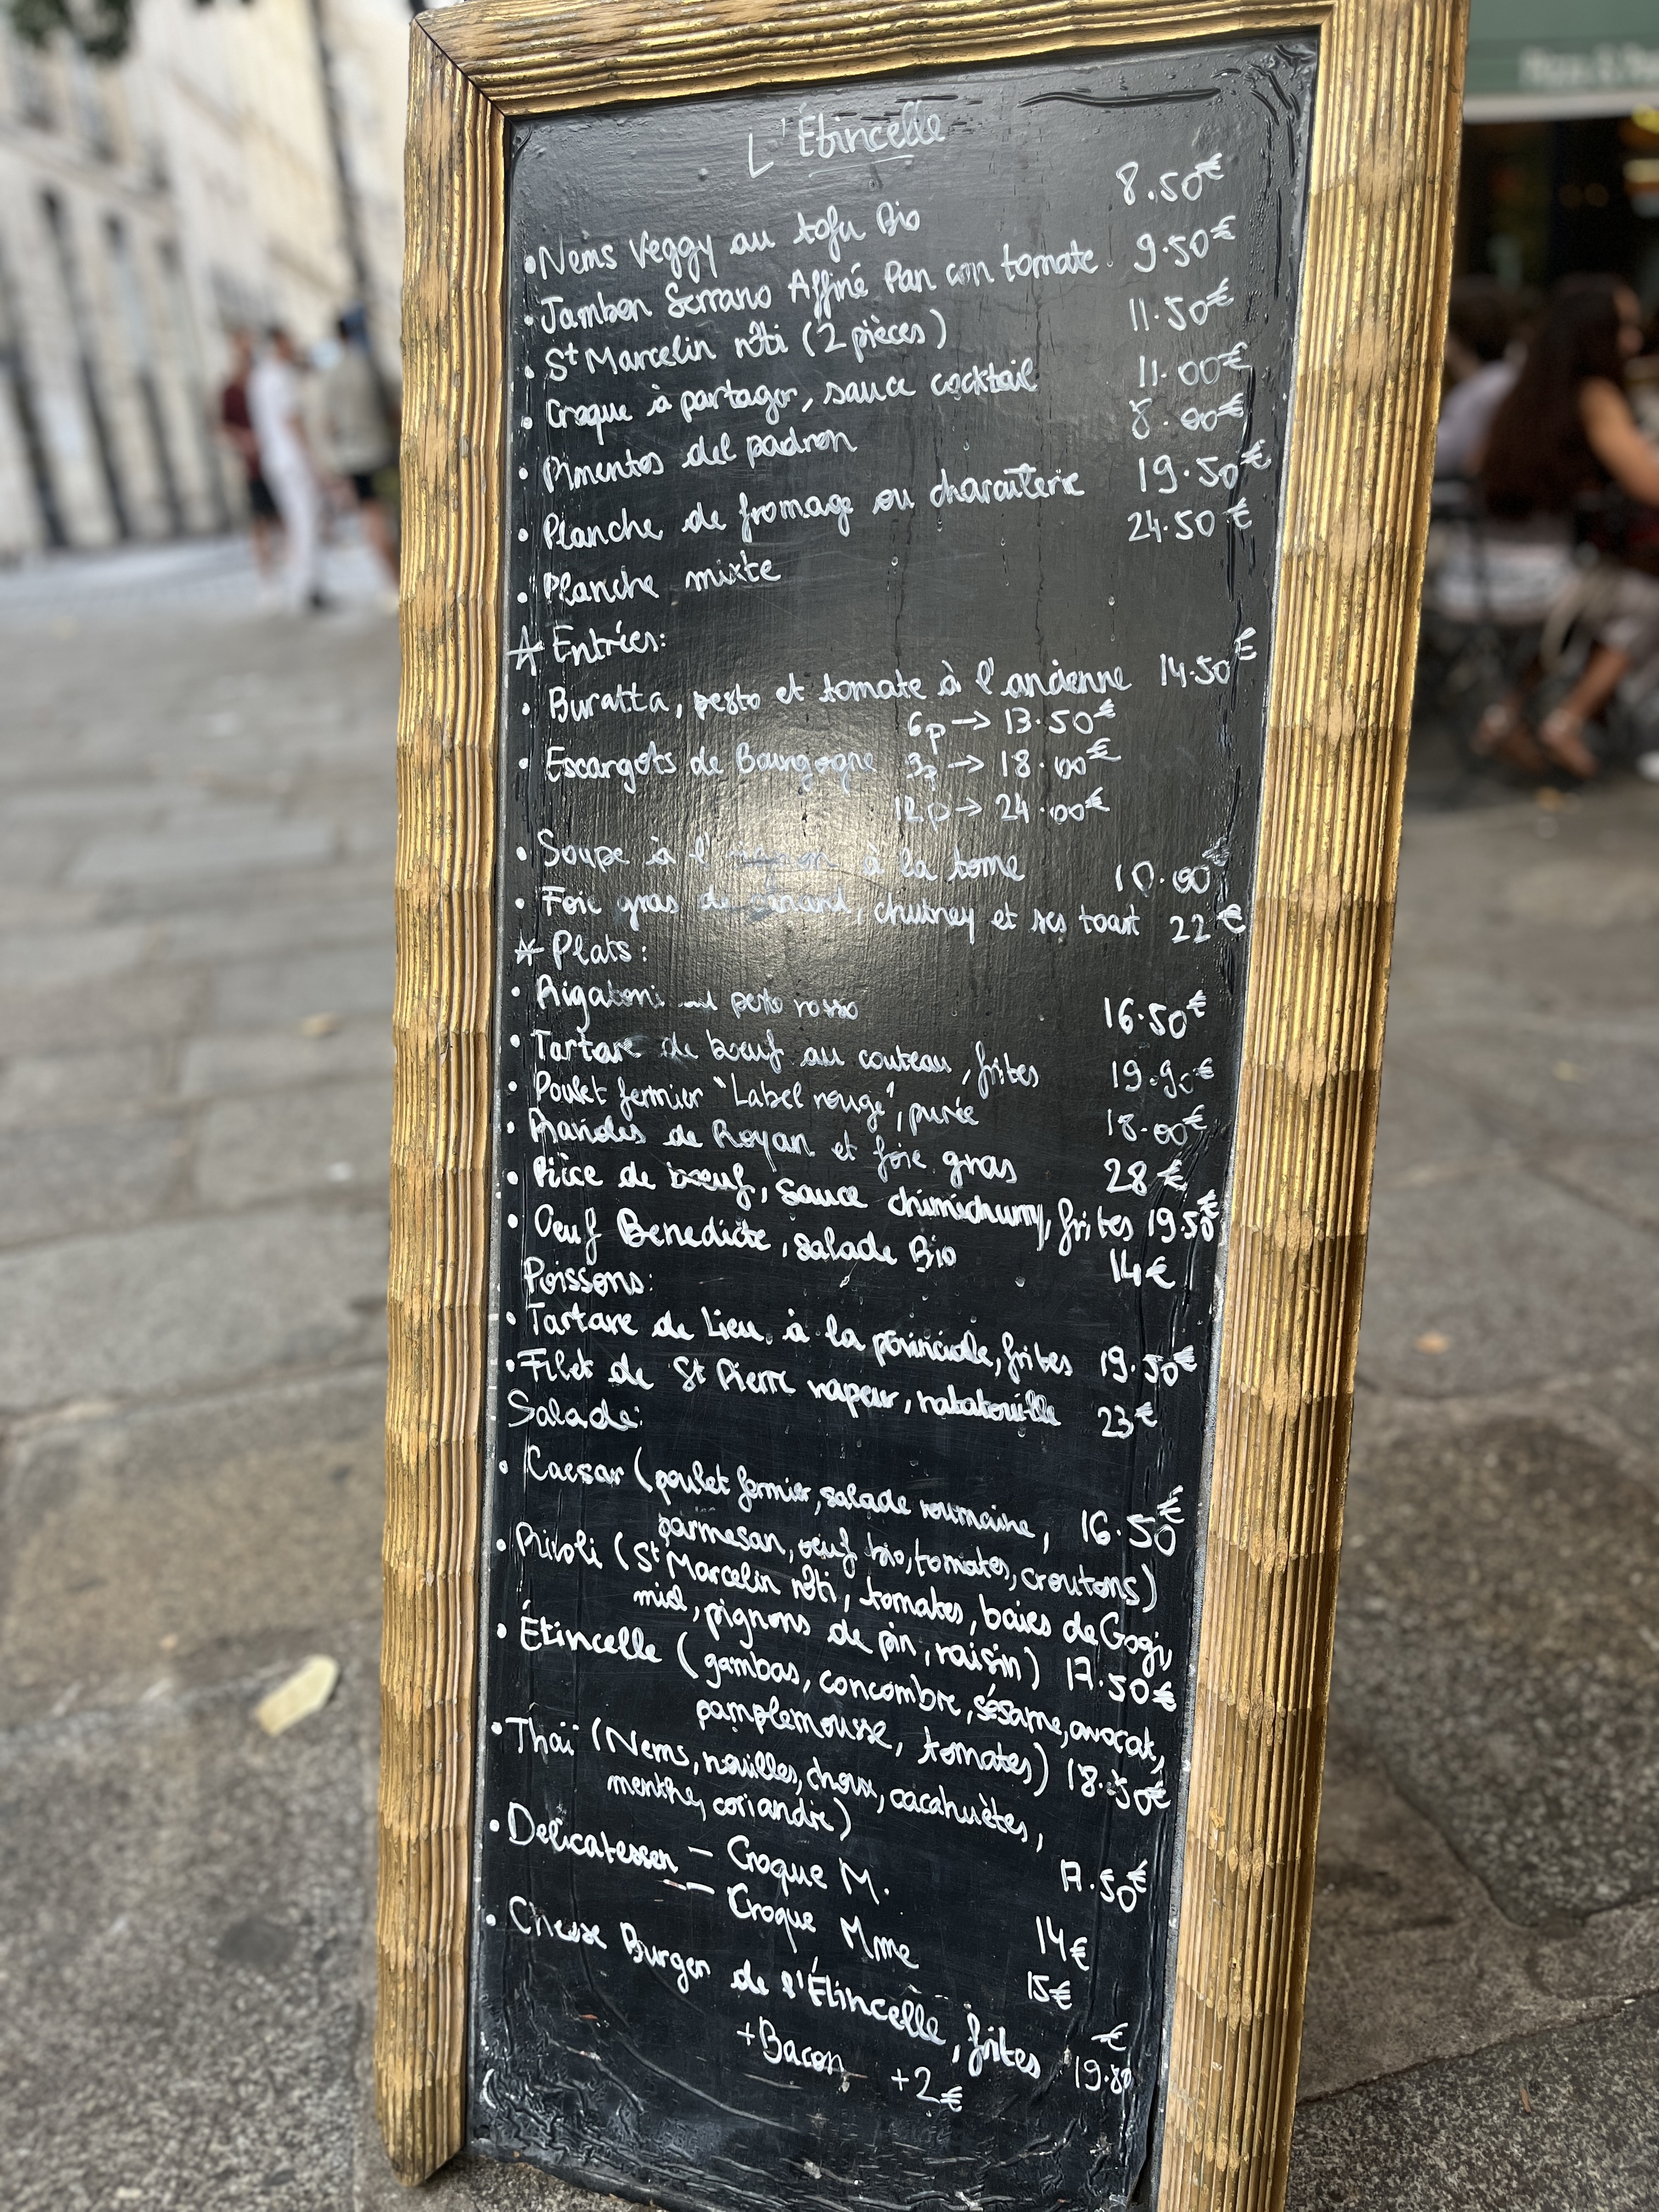 L'Étincelle
• Nems Veggy au tofu Bio 8.50€
• Jambon Serrano Affiné Pan con tomate 9.50€
• St Marcelin rôti (2 pièces) 11.50€
• Croque à partager, sauce cocktail 11.00€
• Pimentos del padron 8.00€
• Planche de fromage ou charcuterie 19.50€
• Planche mixte 24.50€
* Entrées:
• Buratta, pesto et tomate à l'ancienne 14.50€
6p → 13.50€
• Escargots de Bourgogne → 18.00€
12p → 24.00€
• Soupe à l' à la tome 10.00€
• Foie gras de canard, chutney et ses toast 22€
* Plats:
• Rigatoni pesto rosso 16.50€
• Tartare de bœuf au couteau, frites 19.90€
• Poulet fermier "Label rouge", purée 18.00€
• de Royan et foie gras 28€
• Pièce de bœuf, sauce chimichurry, frites 19.50€
• Oeuf Benedicte, salade Bio 14€
Poissons:
• Tartare de Lieu à la, frites 19.50€
• Filet de St Pierre vapeur, ratatouille 23€
Salade:
• Caesar (poulet fermier, salade roumaine, 16.50€
parmesan, œuf bio, tomates, croutons)
• Rivoli (St Marcelin rôti, tomates, baies de Gogi,
miel, pignons de pin, raisin) 17.50€
• Étincelle (gambas, concombre, sésame, avocat,
pamplemousse, tomates) 18.50€
• Thaï (Nems, nouilles, choux, cacahuètes,
menthe, coriandre) 17.50€
• Delicatessen - Croque M. 14€
- Croque Mme 15€
• Cheese Burger de l'Étincelle, frites €
+Bacon +2€